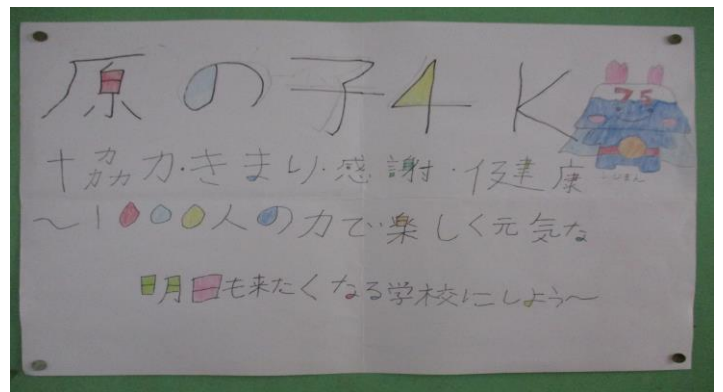 原の子4K
協力・きまり・感謝・健康
〜1000人の力で楽しく元気な
明日も来たくなる学校にしよう〜
75